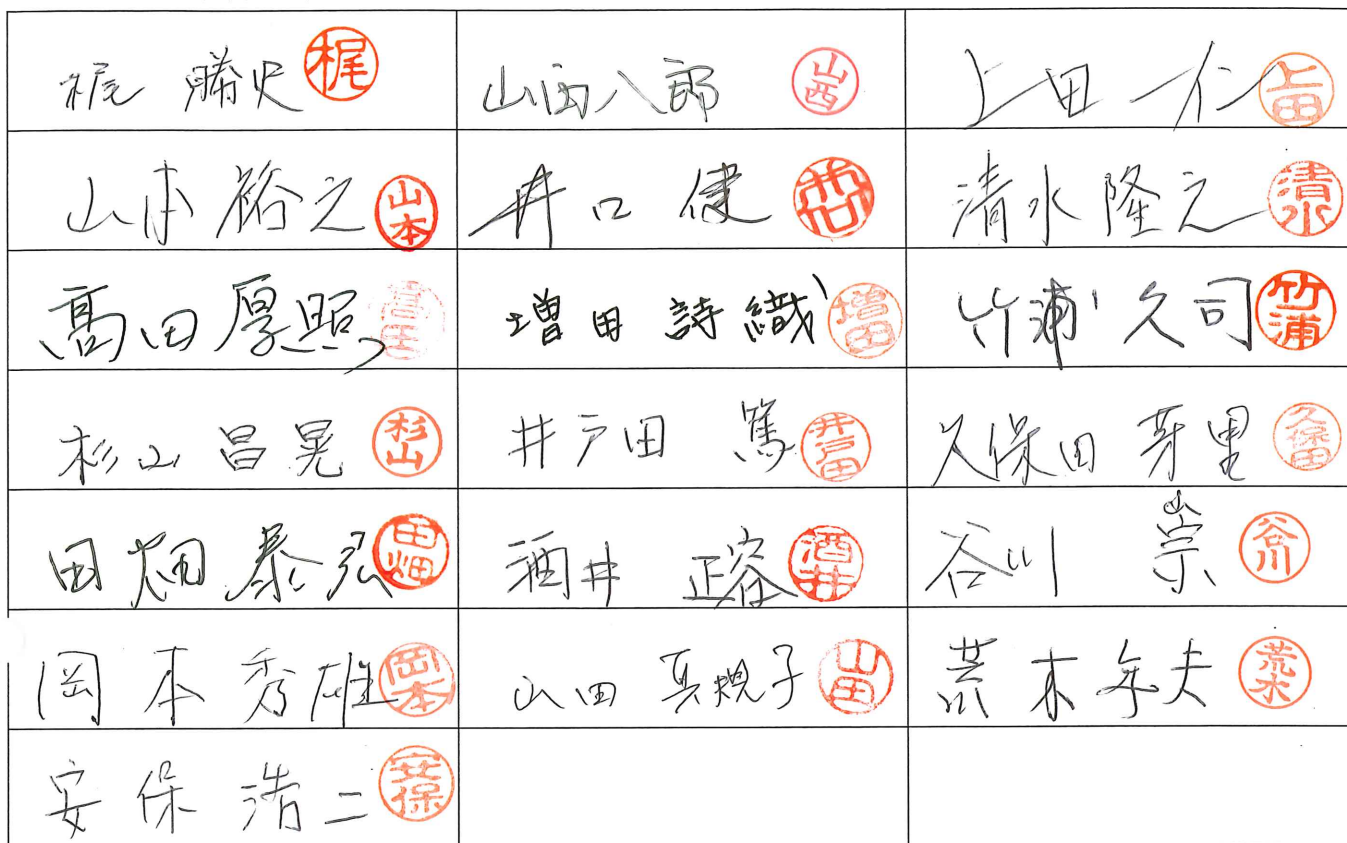 梶 勝史 梶
山西八郎 山西
上田 仁 上田
山本裕之 山本
井口 健 井口
清水隆之 清水
髙田厚照 高田
増田 詩織 増田
竹浦久司 竹浦
杉山昌晃 杉山
井戸田 篤 井戸田
久保田 芽里 久保田
田畑泰弘 田畑
酒井 正容 酒井
谷川 崇 谷川
岡本秀雄 岡本
山田 真規子 山田
荒木年夫 荒木
安保 浩二 安保